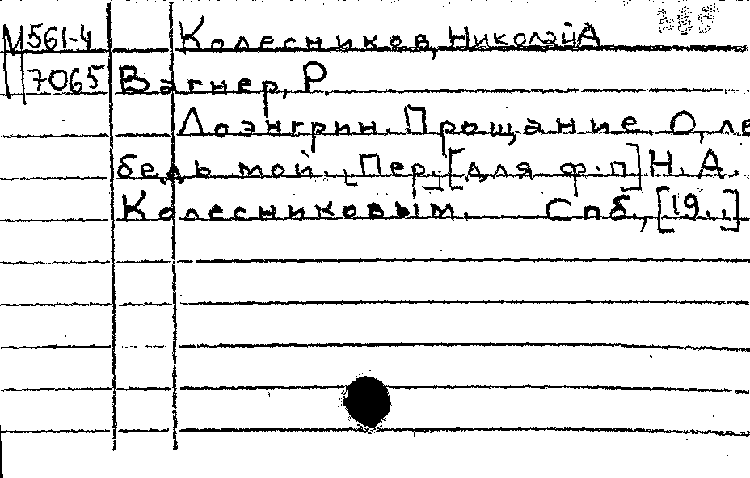 М561-4 Колесников, Николай А
7065 Вагнер, Р.
Лоэнгрин. Прощание. О, ле
бедь мой. Пер. [для ф.-п] Н. А.
Колесниковым. Спб, [19..]